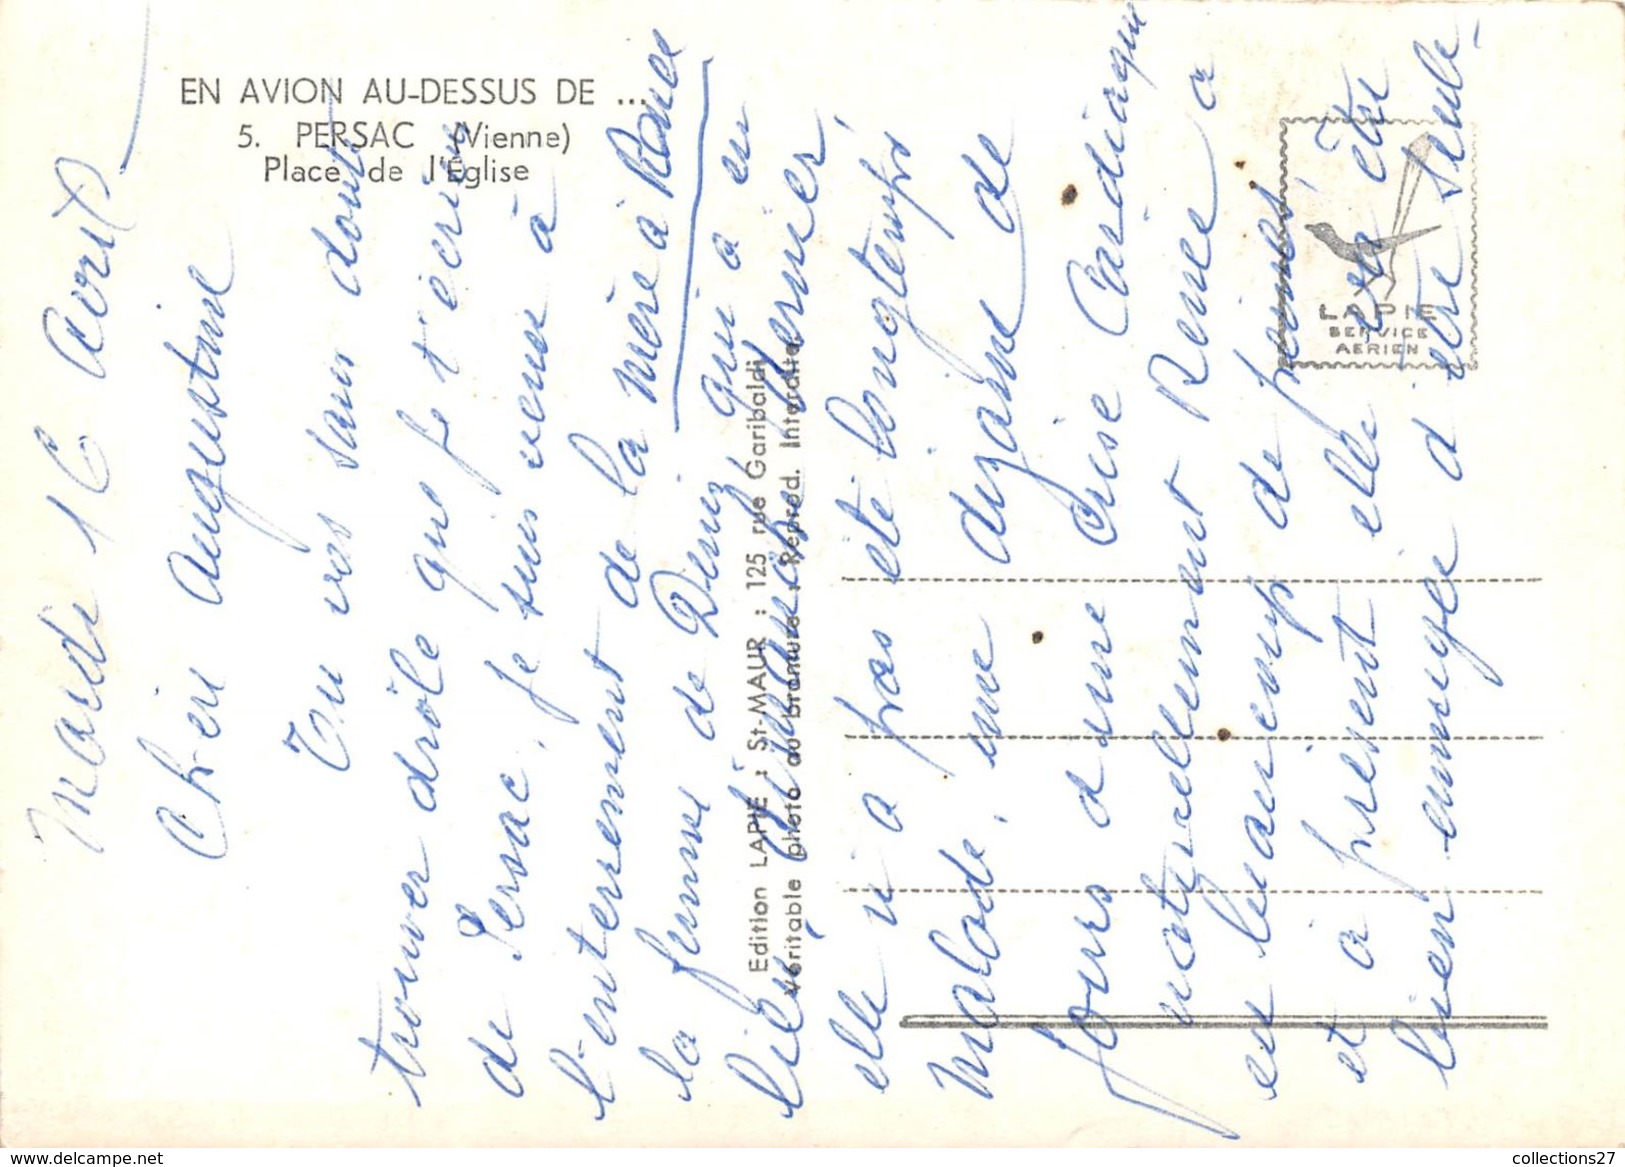 EN AVION AU-DESSUS DE ...
5. PERSAC (Vienne)
Place de l'Église
Edition LAPIE : St-MAUR : 125 rue Garibaldi
Véritable photo au bromure - Reprod. Interdite
LAPIE
SERVICE
AERIEN
Mardi 16 Avril
Chère Augustine
Tu vas sans doute
trouver drôle que je t'écrive
de Persac, je suis venue à
l'enterrement de la mère à Renée
la femme de Denis qui a eu
lieu dimanche dernier,
elle n'a pas été longtemps
malade, une dizaine de
jours d'une crise Cardiaque
naturellement Renée a
eu beaucoup de peine
et à présent elle va être
bien ennuyé d'être seule -
delcampe.net
collections27